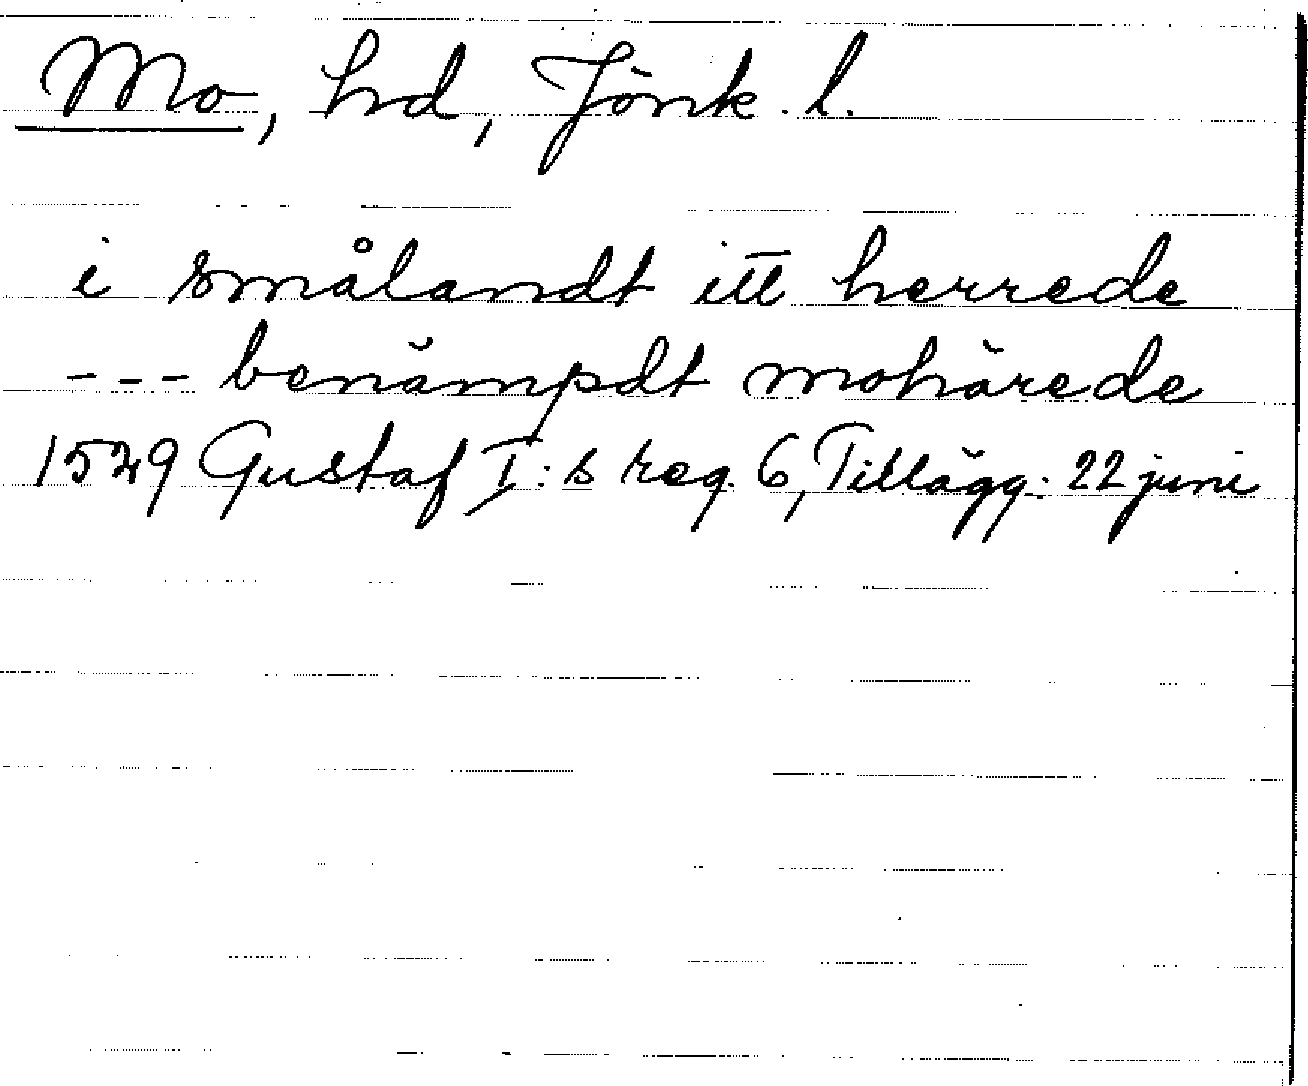 Mo, hd, Jönk. l.
i smålandt itt herrede
--- benämpdt mohärede
1529 Gustaf I:s reg. 6, Tillägg. 22 juni